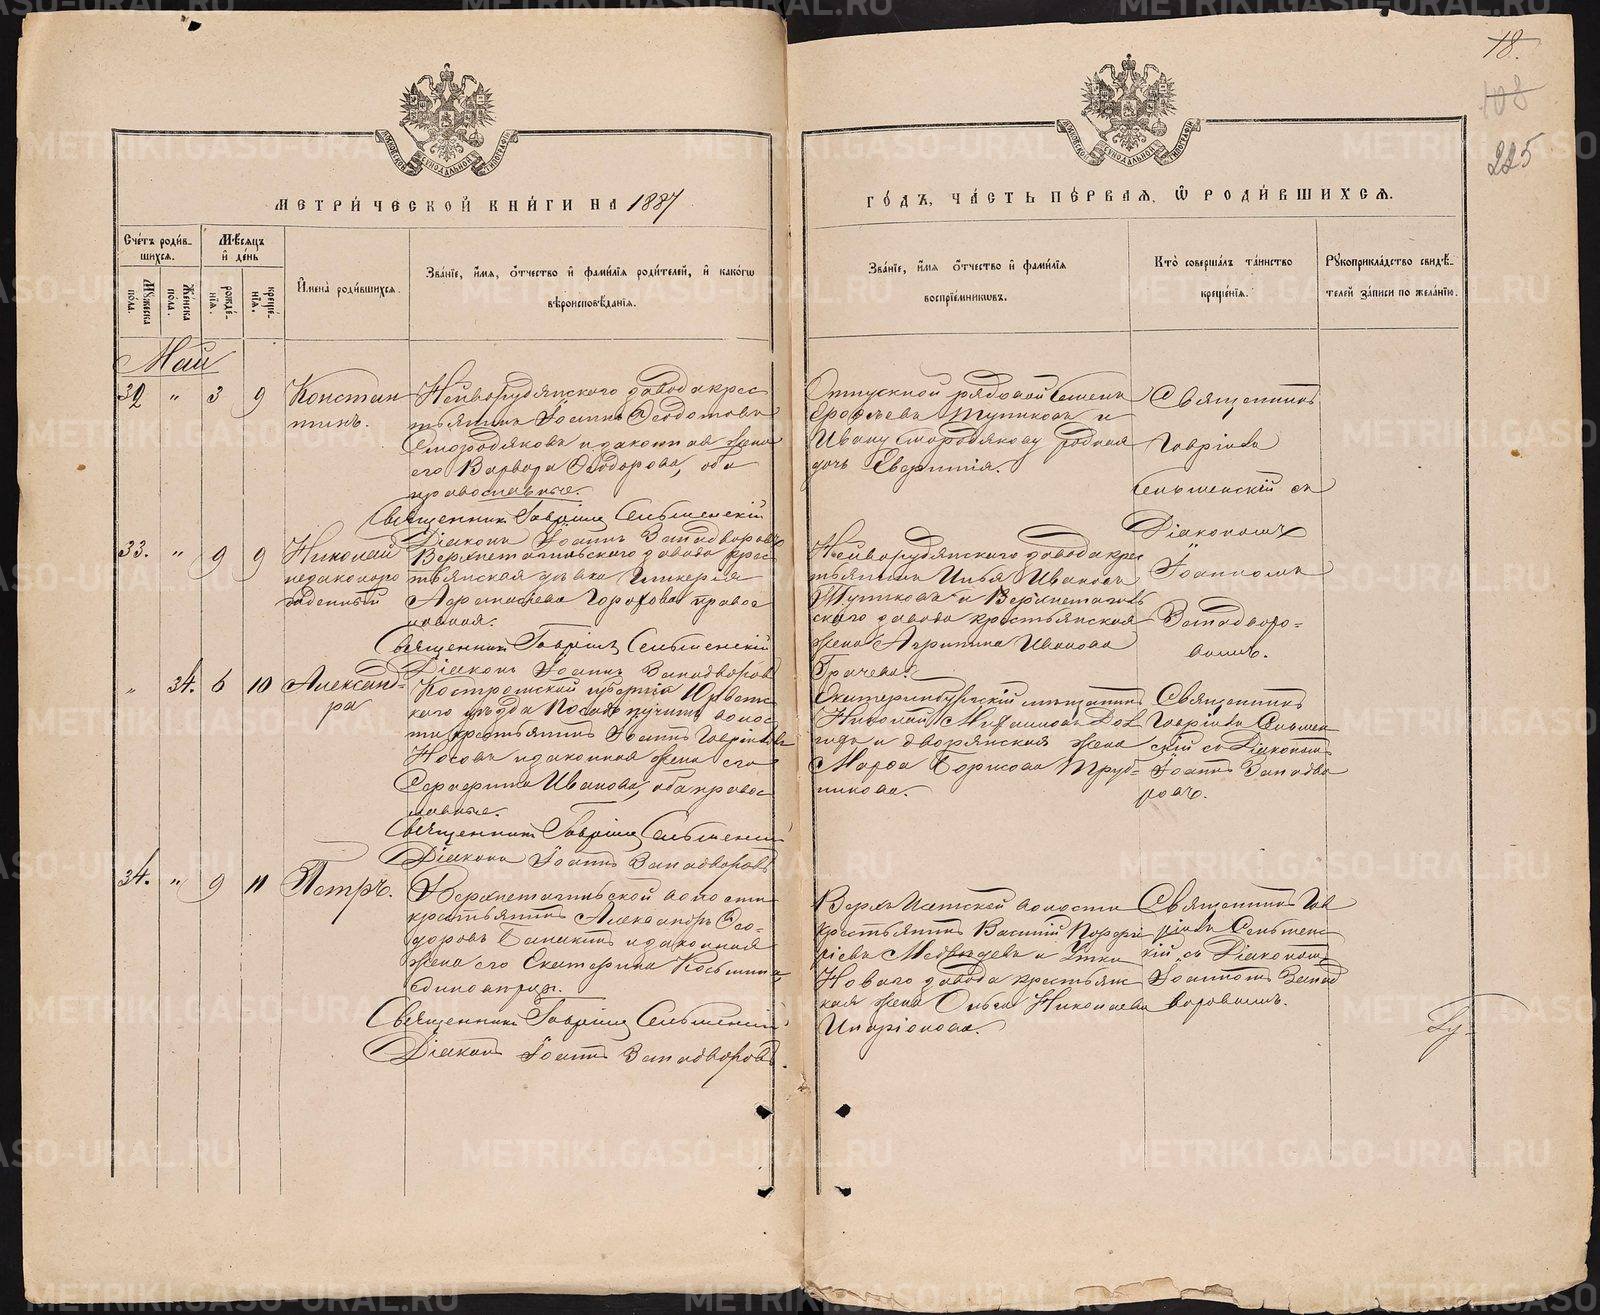 18.
108
225
МЕТРИ́ЧЕСКОЙ КНИ́ГИ НА 1887
ГО́ДЪ, ЧА́СТЬ ПЕ́РВАЯ, Ѽ РОДИ́ВШИХСЯ.
Сче́тъ роди́в-
шихся.
Му́жеска пола.
Же́нска пола.
Мѣ́сяцъ
и҆ де́нь
рожде́-
нїѧ.
креще́-
нїѧ.
И҆мена̀ роди́вшихся.
Зва́нїе, и҆́мя, ѻ҆́тчество и҆ фами́лїя роди́телей, и҆ како́гѡ
вѣроисповѣ́данїя.
Зва́нїе, и҆́мя ѻ҆́тчество и҆ фами́лїя
воспрїе́мникѡвъ.
Кто̀ соверша́лъ та́инство
креще́нїя.
Рꙋкоприкла́дство свидѣ́-
телей за́писи по жела́нїю.
Май
32 " 3 9
Констан
тинъ.
Нейворудянского завода крес
тьянинъ Іоаннъ Ѳеодотовъ
Смородяковъ и законная жена
его Варвара Ѳеодорова, оба
православные.
Священникъ Гавріилъ Сельменскій
Діаконъ Іоаннъ Западворовъ
Отпускной рядовой Семенъ
Ерофѣевъ Тупиковъ и
Ивану Смородякову родная
дочь Евдокія.
Священникъ
Гавріилъ
Сельменскій съ
Діакономъ
Іоанномъ
Западворо-
вымъ.
33. " 9 9
Николай
незаконоро
жденный
Верхнетагильского завода крес
тьянская дѣвка Гликерія
Афанасіева Горохова правос
лавная.
Священникъ Гавріилъ Сельменскій
Діаконъ Іоаннъ Западворовъ
Нейворудянского завода крес
тьянинъ Илья Ивановъ
Тупиковъ и Верхнетагиль
ского завода крестьянская
жена Агрипина Иванова
Грачева.
" 34. 6 10
Александ-
ра
Костромской губерніи Юрьевец
кого уѣзда
волос
ти крестьянинъ Іоаннъ Гавріиловъ
Носовъ и законная жена его
Серафима Иванова, оба правос
лавные.
Священникъ Гавріилъ Сельменскій
Діаконъ Іоаннъ Западворовъ
Екатеринбургскій мѣщанинъ
Николай Михаиловъ Дол
и дворянская жена
Марѳа Борисова Труб-
никова.
Священникъ
Гавріилъ Сельмен
скій съ Діакономъ
Іоаннъ Западво
ровъ.
34. " 9 11
Петръ.
Верхнетагильской волости
крестьянинъ Александръ Ѳео-
доровъ и законная
жена его Екатерина Косьмина
Священникъ Гавріилъ Сельменскій
Діаконъ Іоаннъ Западворовъ.
Верхъ Исетской волости
крестьянинъ Василій Порфи
ріевъ Медвѣдевъ и Утки
Новаго завода крестьянс
кая жена Ольга Николаева
Иларіонова.
Священникъ Гав
ріилъ Сельмен
скій съ Діакономъ
Іоанномъ Запад
воровымъ.